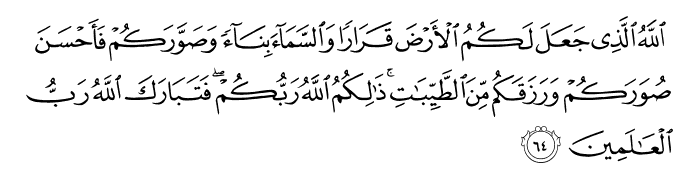 ٱللَّهُ ٱلَّذِى جَعَلَ لَكُمُ ٱلْأَرْضَ قَرَارًا وَٱلسَّمَآءَ بِنَآءً وَصَوَّرَكُمْ فَأَحْسَنَ
صُوَرَكُمْ وَرَزَقَكُم مِّنَ ٱلطَّيِّبَـٰتِ ۚ ذَٰلِكُمُ ٱللَّهُ رَبُّكُمْ ۖ فَتَبَارَكَ ٱللَّهُ رَبُّ
ٱلْعَـٰلَمِينَ ﴿٦٤﴾